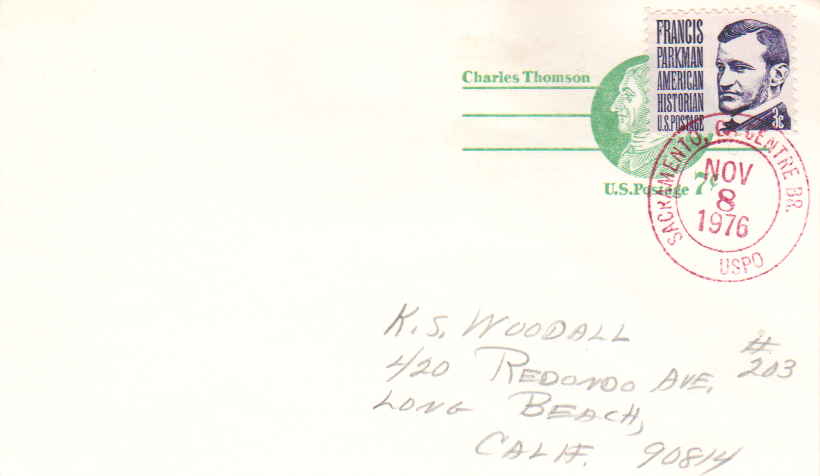 FRANCIS
PARKMAN
AMERICAN
HISTORIAN
U.S. POSTAGE
3c
Charles Thomson
U.S. Postage 7¢
SACRAMENTO, CA CENTRE BR.
NOV
8
1976
USPO
K.S. WOODALL
420 REDONDO AVE. #203
LONG BEACH,
CALIF. 90814